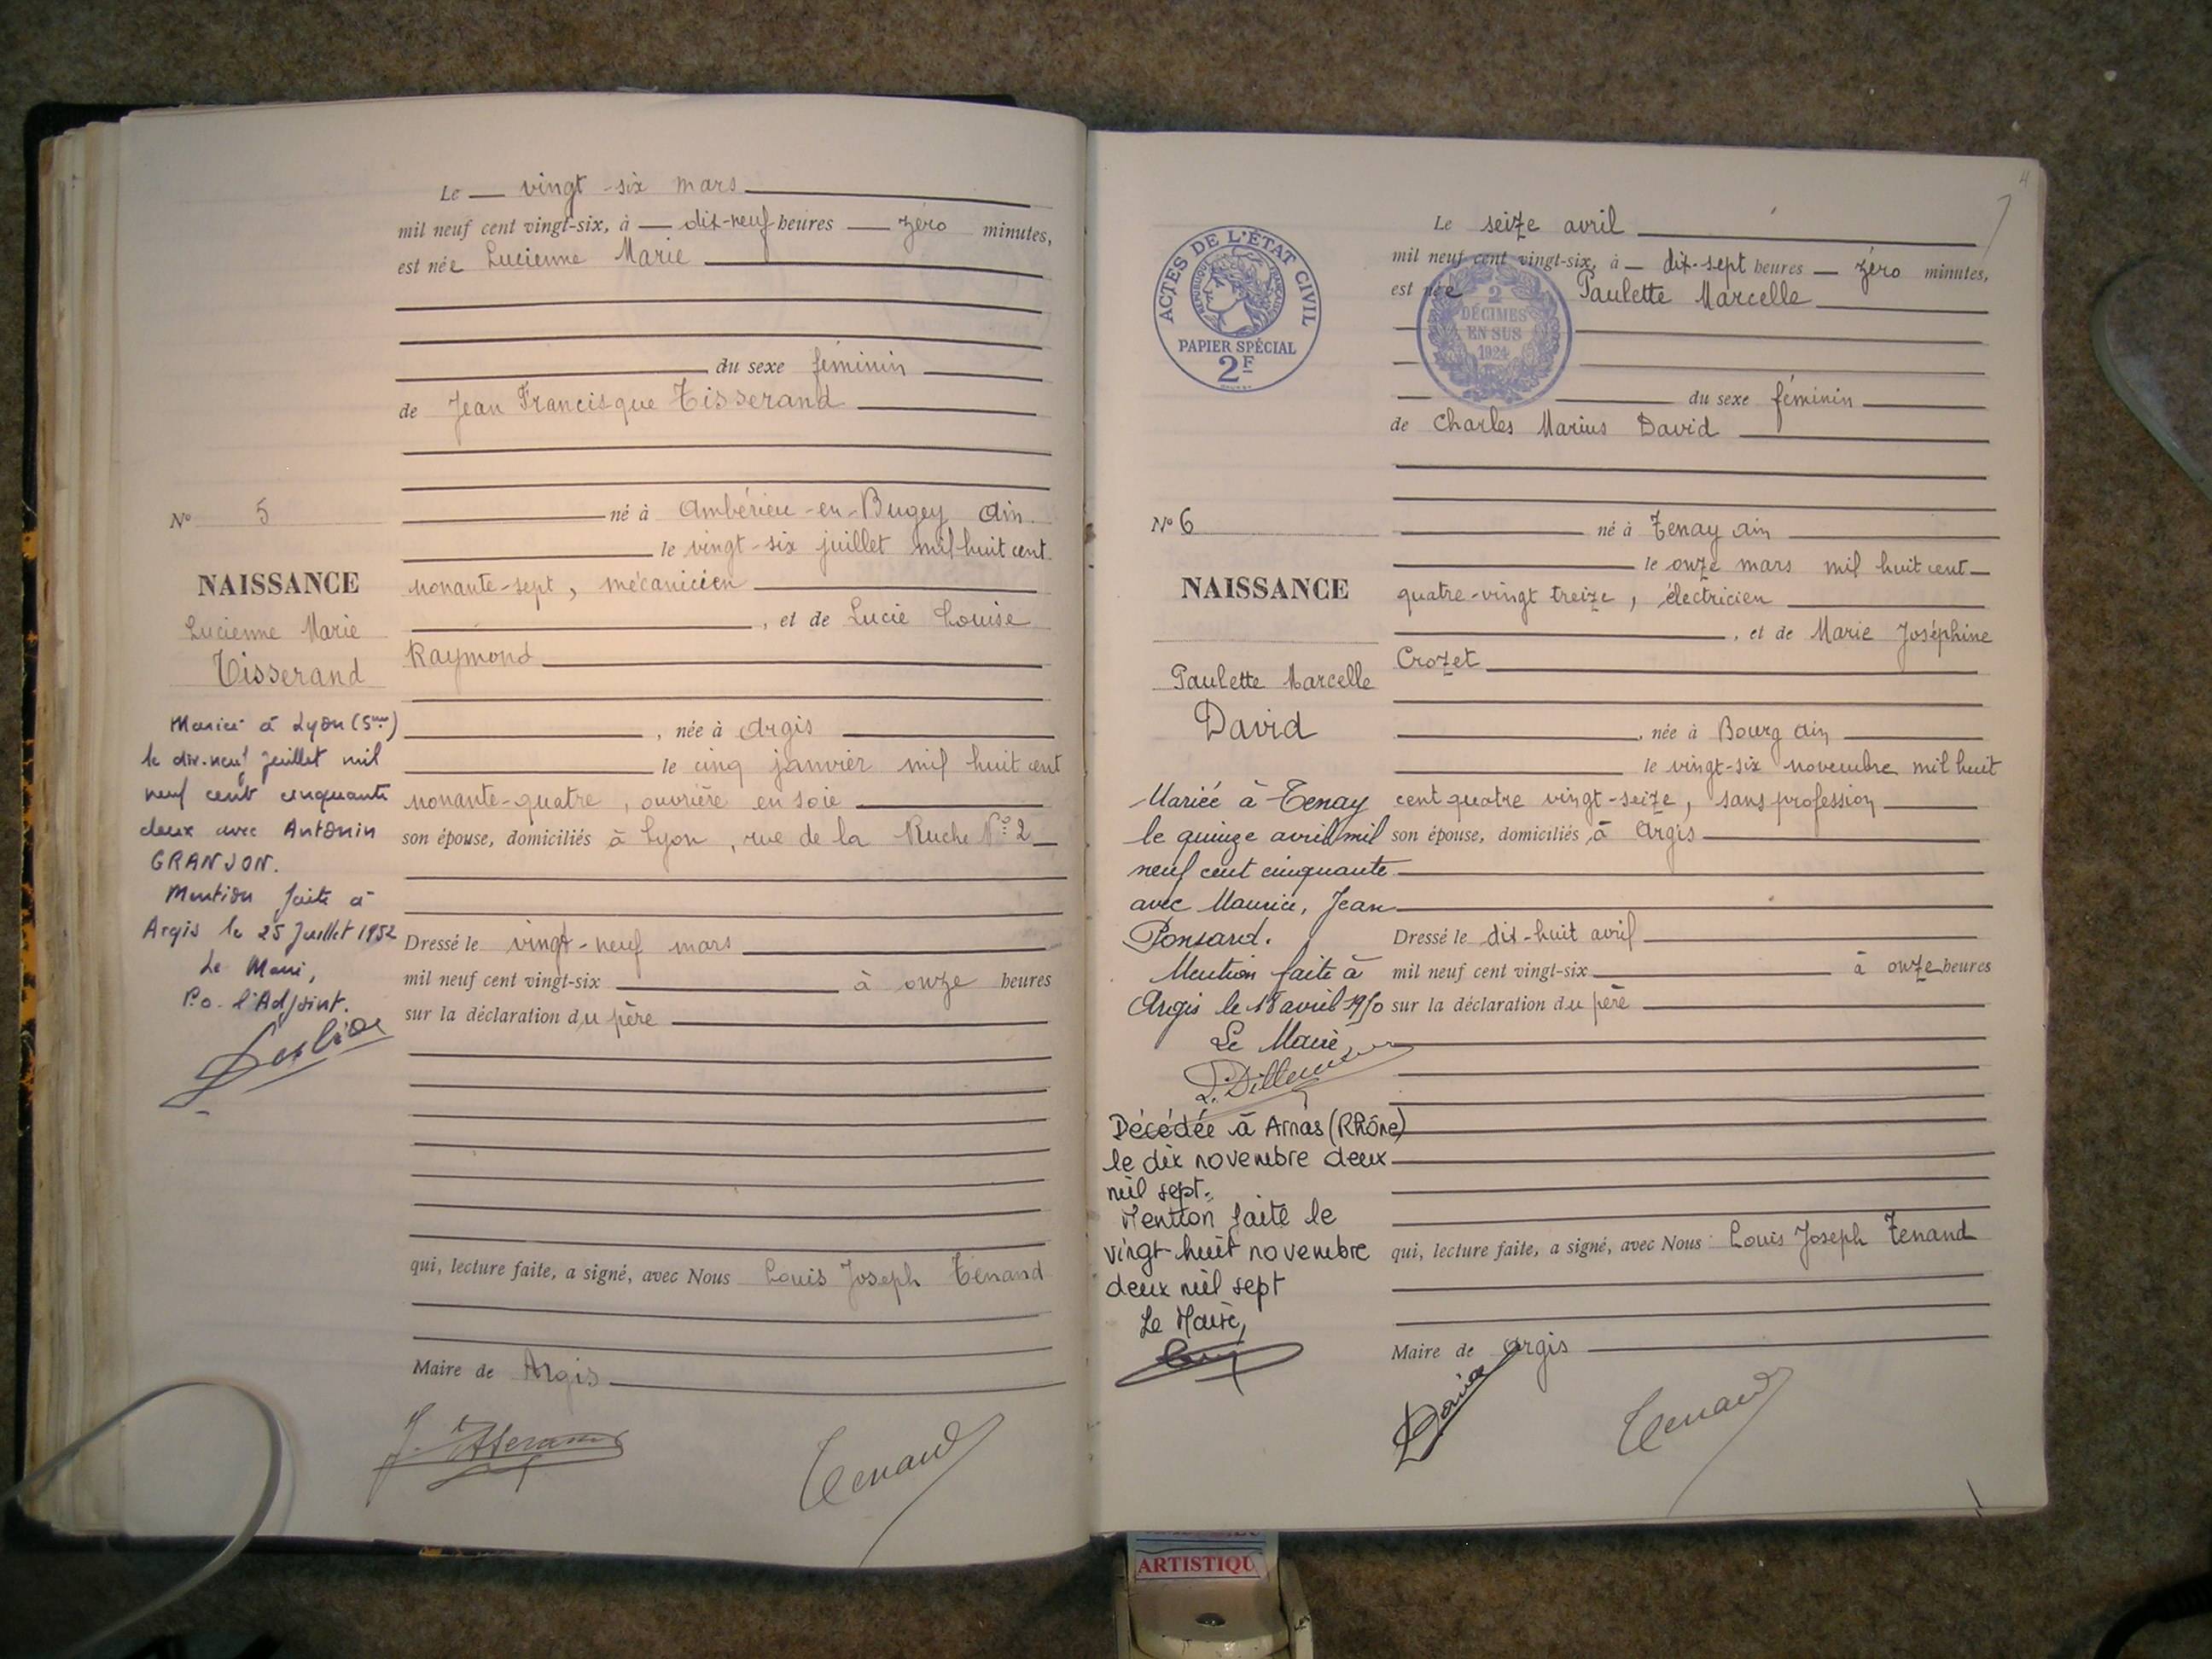 Le vingt-six mars
mil neuf cent vingt-six, à dix-neuf heures zéro minutes,
est née Lucienne Marie
du sexe féminin
de Jean Francisque Tisserand
né à Ambérieu-en-Bugey Ain
le vingt-six juillet mil huit cent
nonante-sept, mécanicien
, et de Lucie Louise
Raymond
, née à Argis
le cinq janvier mil huit cent
nonante-quatre, ouvrière en soie
son épouse, domiciliés à Lyon, rue de la Ruche N° 2
Dressé le vingt-neuf mars
mil neuf cent vingt-six à onze heures
sur la déclaration du père
qui, lecture faite, a signé, avec Nous Louis Joseph Tenand
Maire de Argis
J. Tisserand
Tenand
N° 5
NAISSANCE
Lucienne Marie
Tisserand
Mariée à Lyon (5me)
le dix-neuf Juillet mil
neuf cent cinquante
deux avec Antonin
GRANJON.
Mention faite à
Argis le 25 Juillet 1952
Le Maire,
P.o. l'Adjoint.
4
Le seize avril
mil neuf cent vingt-six, à dix-sept heures zéro minutes,
est née Paulette Marcelle
du sexe féminin
de Charles Marius David
né à Tenay Ain
le onze mars mil huit cent
quatre-vingt treize, électricien
, et de Marie Joséphine
Crozet
, née à Bourg Ain
le vingt-six novembre mil huit
cent quatre vingt-seize, sans profession
son épouse, domiciliés à Argis
Dressé le dix-huit avril
mil neuf cent vingt-six à onze heures
sur la déclaration du père
qui, lecture faite, a signé, avec Nous Louis Joseph Tenand
Maire de Argis
David
Tenand
ACTES DE L'ÉTAT CIVIL
RÉPUBLIQUE FRANÇAISE
PAPIER SPÉCIAL
2F
2
DÉCIMES
EN SUS
1924
N° 6
NAISSANCE
Paulette Marcelle
David
Mariée à Tenay
le quinze avril mil
neuf cent cinquante
avec Maurice, Jean
Ponsard.
Mention faite à
Argis le 18 avril 1950
Le Maire,
Décédée à Arnas (Rhône)
le dix novembre deux
mil sept.
Mention faite le
vingt-huit novembre
deux mil sept
Le Maire,
ARTISTIQU